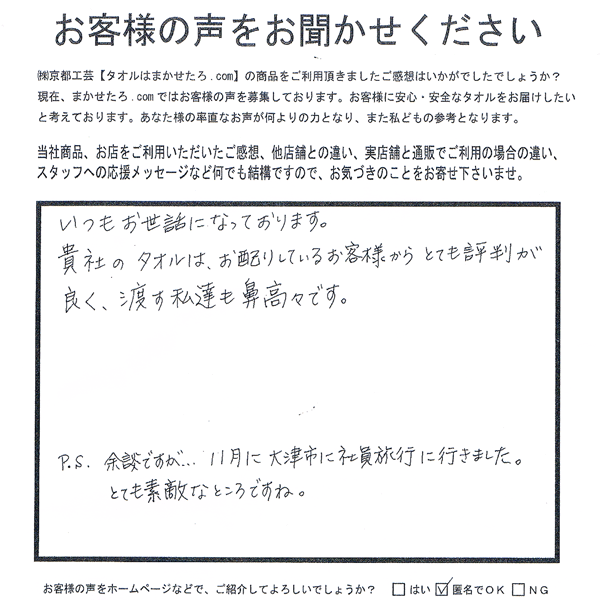 お客様の声をお聞かせください
㈱京都工芸【タオルはまかせたろ.com】の商品をご利用頂きましたご感想はいかがでしたでしょうか?
現在、まかせたろ.comではお客様の声を募集しております。お客様に安心・安全なタオルをお届けしたい
と考えております。あなた様の率直なお声が何よりの力となり、また私どもの参考となります。
当社商品、お店をご利用いただいたご感想、他店舗との違い、実店舗と通販でご利用の場合の違い、
スタッフへの応援メッセージなど何でも結構ですので、お気づきのことをお寄せ下さいませ。
いつもお世話になっております。
貴社のタオルは、お配りしているお客様からとても評判が
良く、渡す私達も鼻高々です。
P.S. 余談ですが… 11月に大津市に社員旅行に行きました。
とても素敵なところですね。
お客様の声をホームページなどで、ご紹介してよろしいでしょうか? □はい ☑匿名でOK □NG